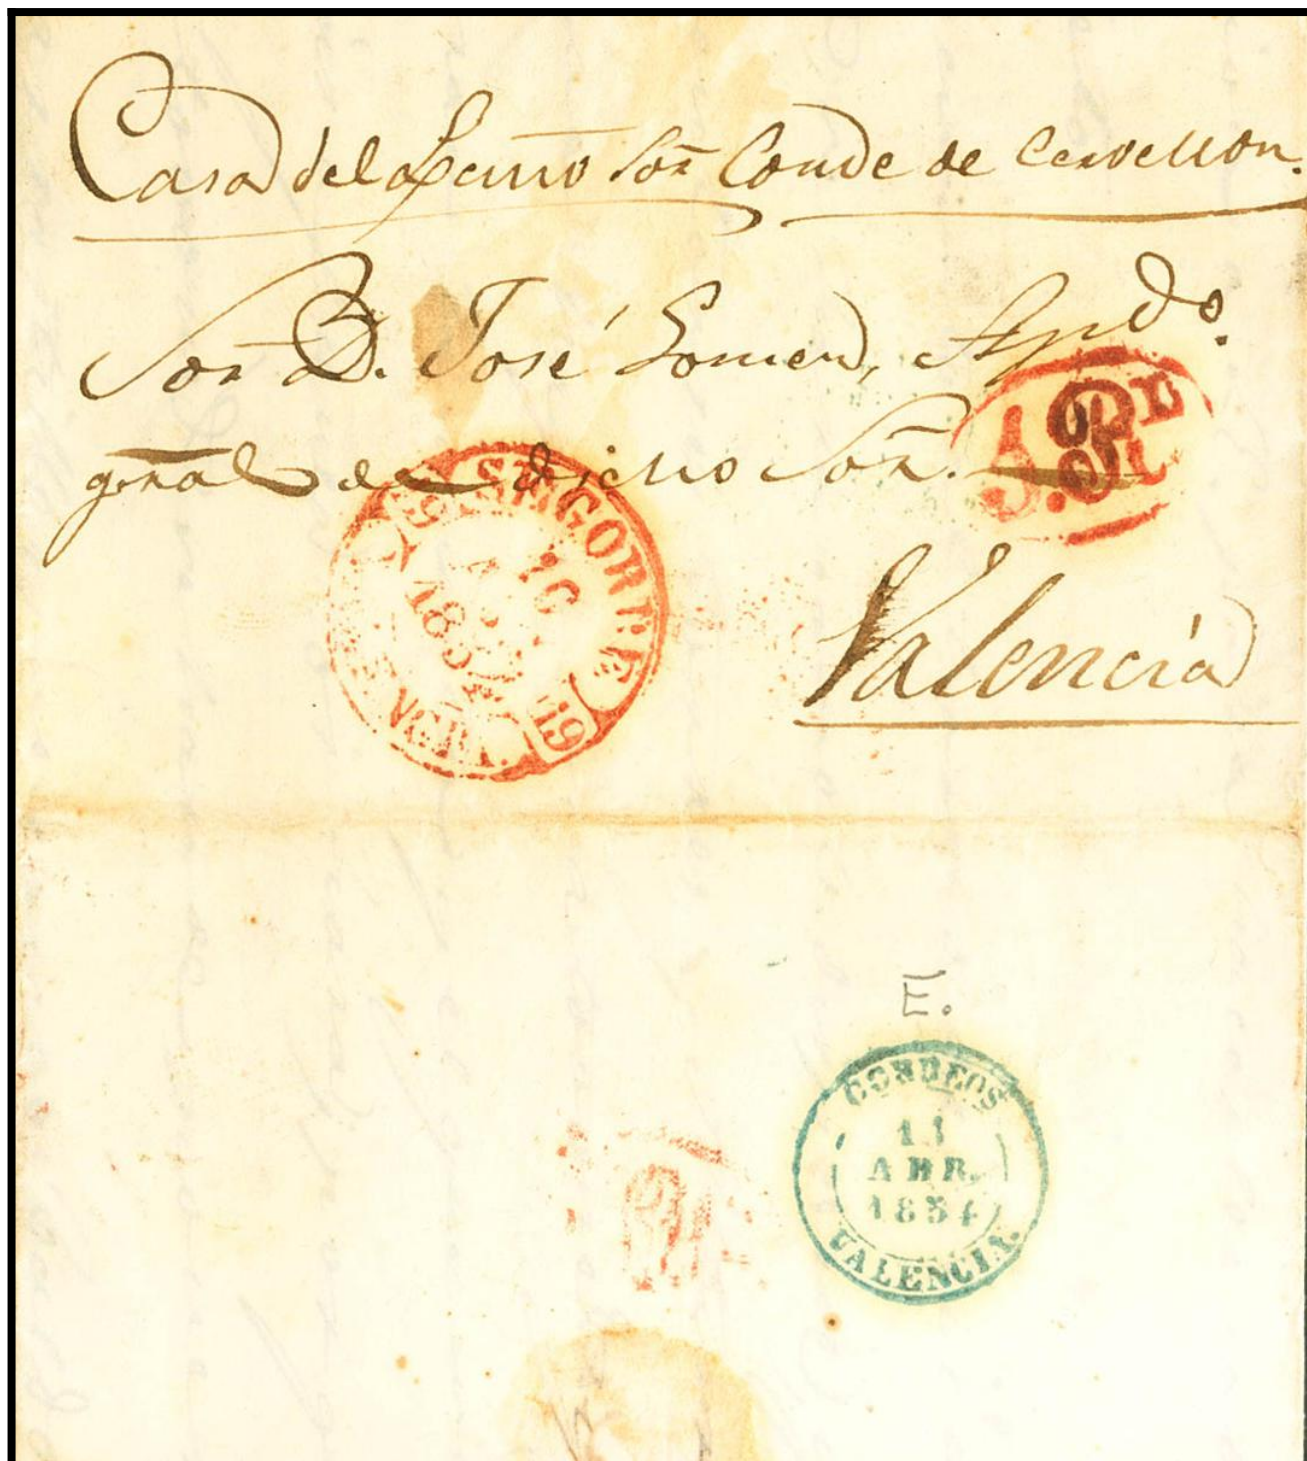 Casa del Excmo Sor Conde de Cervellon.
Sor D. José Gomez, Apdo.
gnral de dicho Sor.
Valencia
SEGORBE
10
1854
VALEN
19
E.
CORREOS
11
ABR.
1854
VALENCIA.